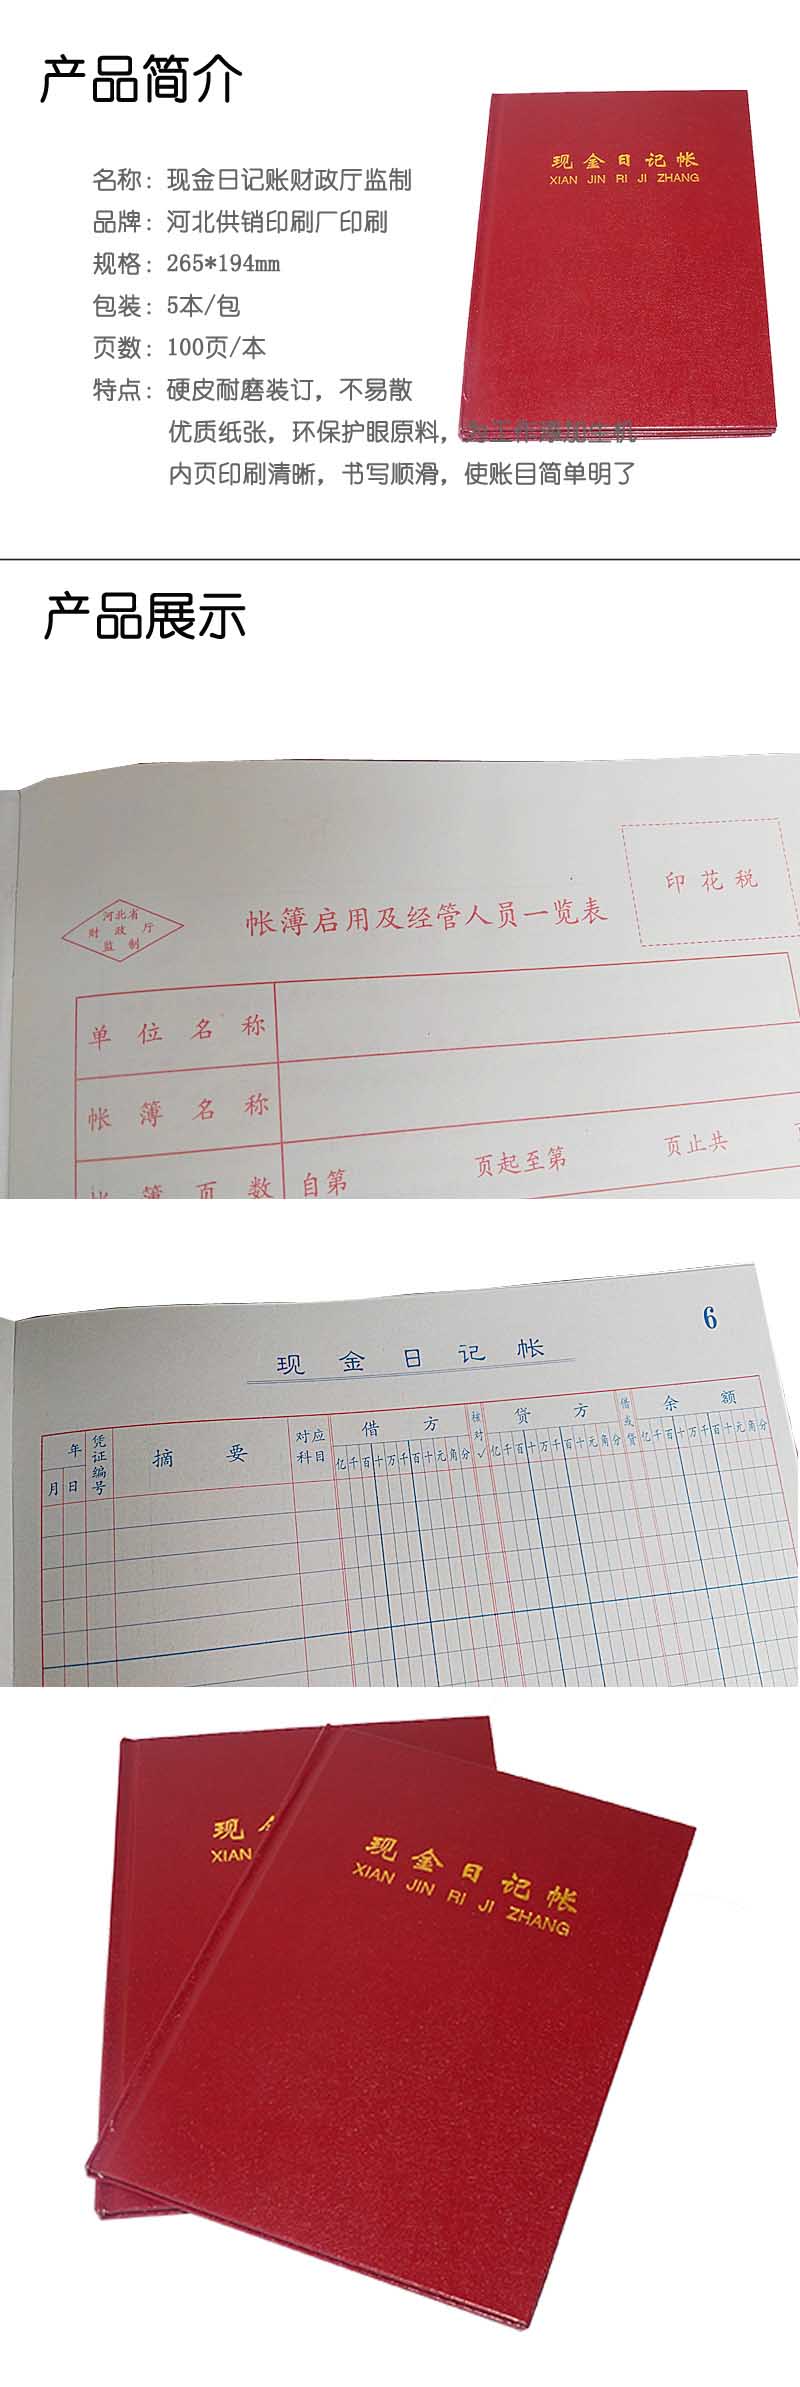 产品简介
现金日记帐
XIAN JIN RI JI ZHANG
名称：现金日记账财政厅监制
品牌：河北供销印刷厂印刷
规格：265*194mm
包装：5本/包
页数：100页/本
特点：硬皮耐磨装订，不易散
优质纸张，环保护眼原料，为工作添加生机
内页印刷清晰，书写顺滑，使账目简单明了
产品展示
印花税
河北省
财政厅
监制
帐簿启用及经管人员一览表
单位名称
帐簿名称
帐簿页数 自第 页起至第 页止共
6
现金日记帐
年 凭证编号 摘要 对应科目 借方 核对√ 贷方 借或贷 余额
月 日 亿千百十万千百十元角分 亿千百十万千百十元角分 亿千百十万千百十元角分
现金
XIAN
现金日记帐
XIAN JIN RI JI ZHANG